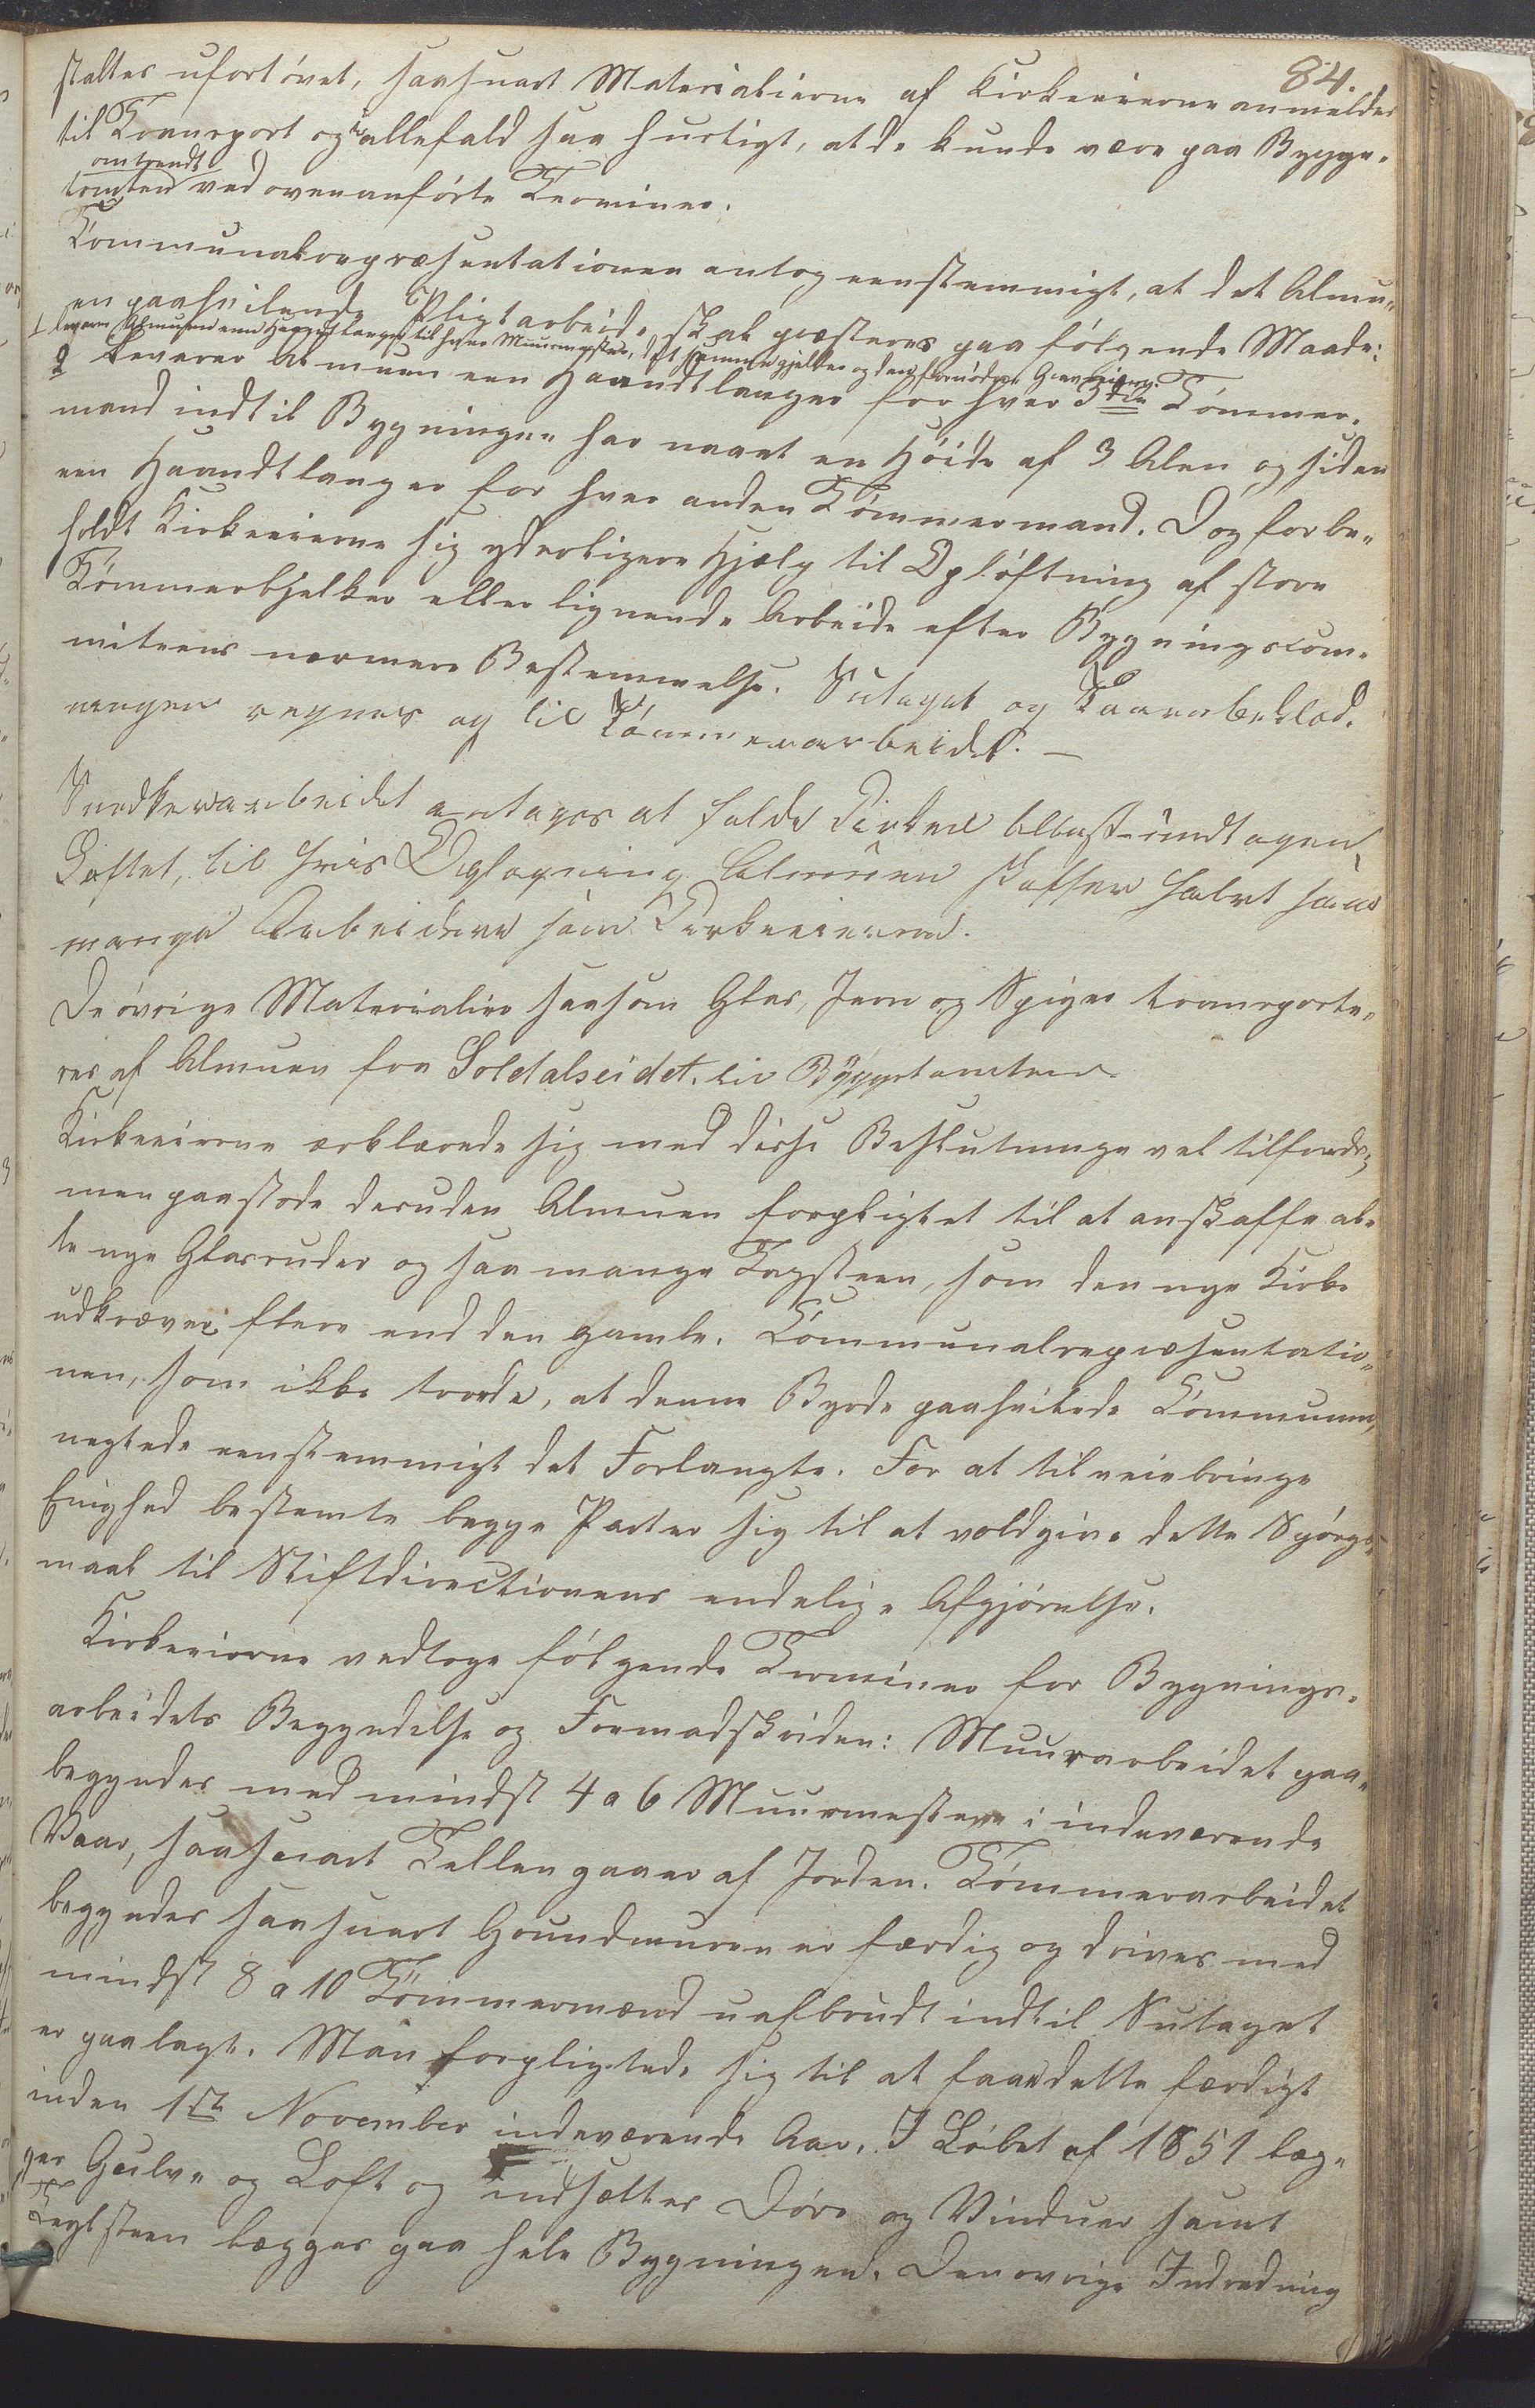 84.
staltes ufortövet, saasnart Materialierne af Kirkeeierne anmeldes
til Transport og i allefald saa hurtigt, at de kunde være paa Bygge-
omtrendt
tomten ved ovenanförte Terminer.
Communalrepræsentationen antog eenstemmigt, at det Almu-
en paahvilende Pligtarbeide skal præsteres paa fölgende Maade:
1 leverer Almuen een Haandtlanger til hver Muurmester, det samme gjelder og den fornödne Gravning.
2 Leverer Almuen een Haandtlanger for hver 3die Tömmer-
mand indtil Bygningen har naaet en Höide af 3 Alen og siden
een Haandtlanger for hver anden Tömmermand. Dog forbe-
holdt Kirkeeierne sig yderligere Hjælp til Oplöftning af store
Tömmerbjelker eller lignende Arbeide efter Bygningscom-
miteens nærmere Bestemmelse. Sutaget og Taarnbeklæd-
ningen regnes og til Tömmerarbeidet. —
Snedkerarbeidet antages at falde Kirken til Last undtagen
Loftet, til hvis Oplægning Almuen skaffer halvt saa
mange Arbeidere som Kirkeeierne.
De övrige Materialier saasom Glas, Jern og Spiger transporte-
res af Almuen fra Soldalseidet til Byggetomten.
Kirkeeierne erklærede sig med disse Beslutninger vel tilfreds;
men paastode desuden Almuen forpligtet til at anskaffe al-
le nye Glasruder og saa mange Tagsteen, som den nye Kirke
udkræver flere end den gamle. Communalrepræsentatio-
nen, som ikke troede, at denne Byrde paahvilede Communen,
negtede eenstemmigt det Forlangte. For at tilveiebringe
Enighed bestemte begge Parter sig til at voldgive dette Spörgs-
maal til Stiftdirectionens endelige Afgjörelse.
Kirkeeierne vedtoge fölgende Terminer for Bygnings-
arbeidets Begyndelse og Fremadskriden: Muurarbeidet paa-
begyndes med mindst 4 a 6 Muurmestere i indeværende
Vaar, saasnart Tellen gaaer af Jorden. Tömmerarbeidet
begyndes saasnart Grundmuren er færdig og drives med
mindst 8 a 10 Tömmermænd uafbrudt indtil Sutaget
er paalagt. Man forpligtede sig til at faae dette færdigt
inden 1ste November indeværende Aar. I Löbet af 1851 læg-
ges Gulve og Loft og indsættes Döre og Vinduer samt
Teglsteen lægges paa hele Bygningen. Den övrige Indredning